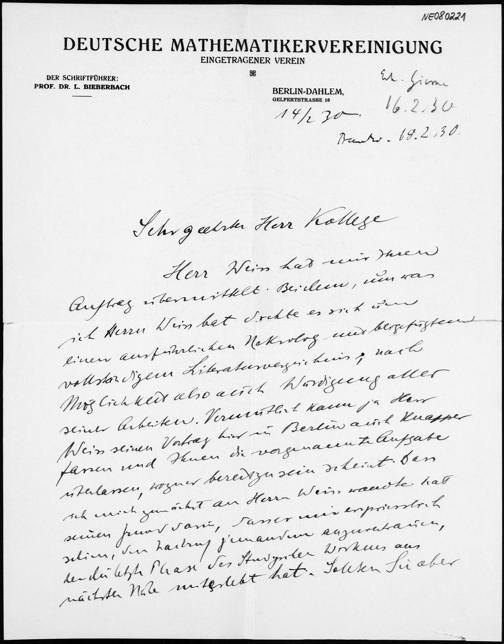 NE080221
DEUTSCHE MATHEMATIKERVEREINIGUNG
EINGETRAGENER VEREIN
DER SCHRIFTFÜHRER:
PROF. DR. L. BIEBERBACH
BERLIN-DAHLEM,
GELFERTSTRASSE 16
14/2 30.
16.2.30
18.2.30.
Sehr geehrter Herr Kollege
Herr Weiss hat mir Ihren
Auftrag übermittelt. Bei dem, um was
ich Herrn Weiss bat drehte es sich um
einen ausführlichen Nekrolog mit beigefügtem
vollständigem Literaturverzeichnis, nach
Möglichkeit also auch Würdigung aller
seiner Arbeiten. Vermutlich kann ja Herr
Weiss seinen Vortrag hier in Berlin auch knapper
fassen und Ihnen die vorgenannte Aufgabe
überlassen, wozu er bereit zu sein scheint. Dass
ich mich zunächst an Herrn Weiss wandte hat
seinen Grund darin, dass es mir erspriesslich
schien, den Nachruf jemandem anzuvertrauen,
der die letzte Phase des Study'schen Wirkens aus
nächster Nähe miterlebt hat. Sollten Sie aber